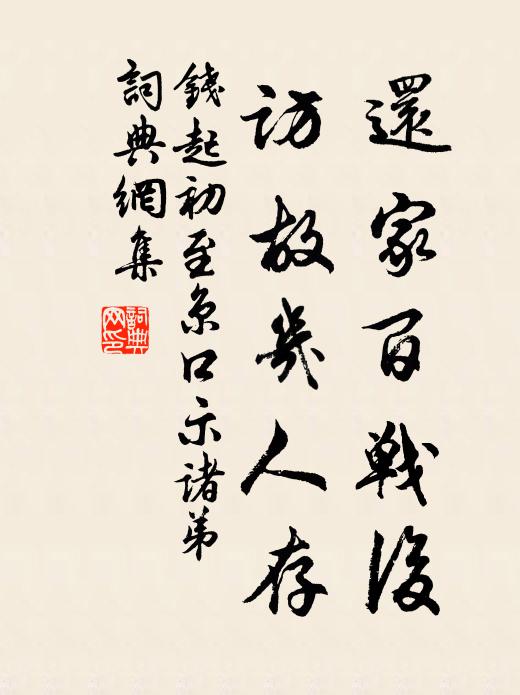 還家百戰後
訪故幾人存
錢起初至京口示諸弟
詞典網集
詞典
网印